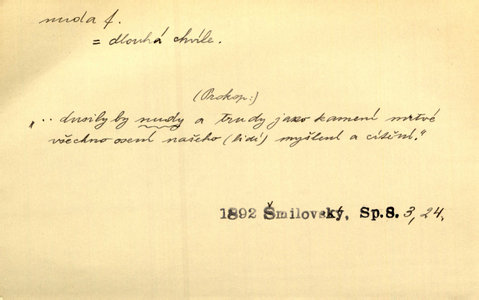 nuda f.
= dlouhá chvíle.
(Prokop:)
"·· dusily by nudy a trudy jako kamení mrtvé
všechno osení našeho (lidí) myšlení a cítění."
1892 Šmilovský, Sp. 8. 3, 24.